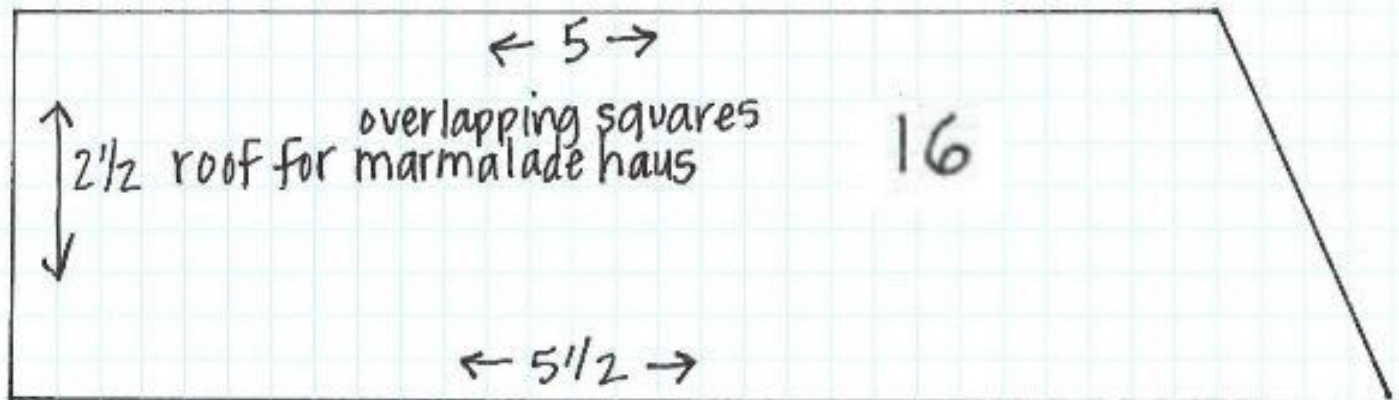 ← 5 →
overlapping squares
2 1/2 roof for marmalade haus
16
← 5 1/2 →